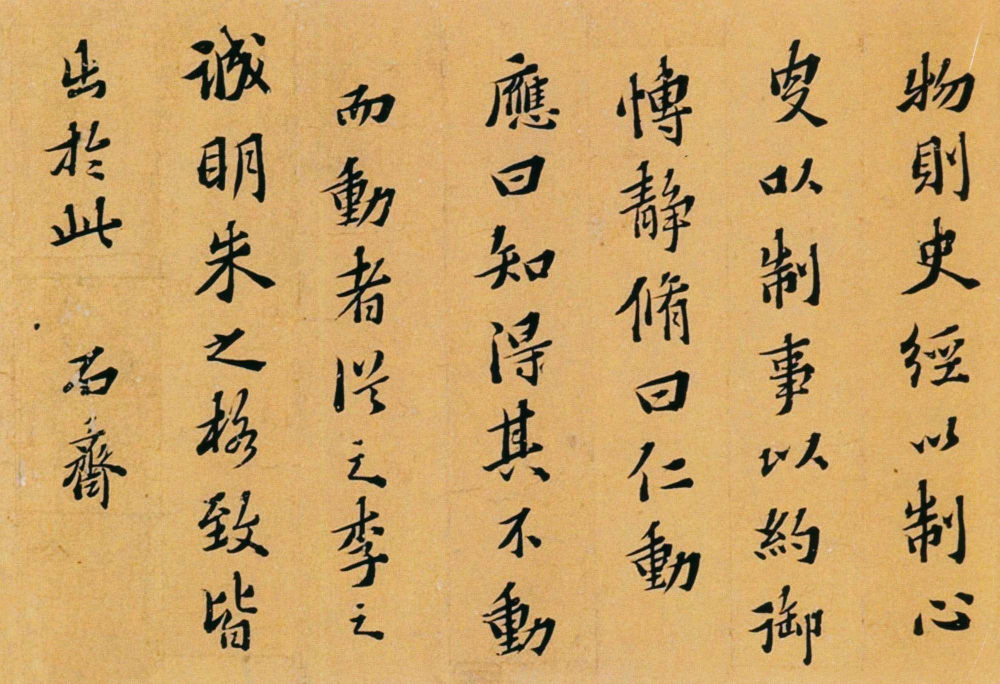 物則史經以制心
史以制事以約御
博靜脩曰仁動
應曰知得其不動
而動者從之李之
誠明朱之格致皆
出於此 西齋